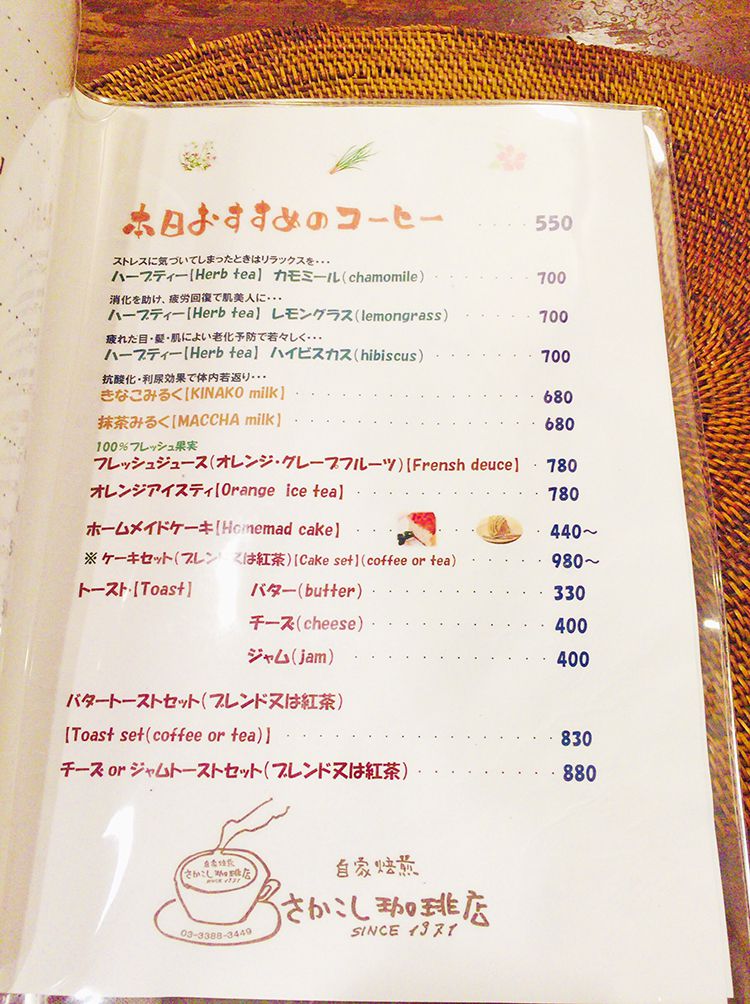 本日おすすめのコーヒー ····· 550
ストレスに気づいてしまったときはリラックスを･･･
ハーブティー【Herb tea】 カモミール(chamomile) 700
消化を助け、疲労回復で肌美人に･･･
ハーブティー【Herb tea】 レモングラス(lemongrass) 700
疲れた目・髪・肌によい老化予防で若々しく･･･
ハーブティー【Herb tea】 ハイビスカス(hibiscus) 700
抗酸化・利尿効果で体内若返り･･･
きなこみるく【KINAKO milk】 ················ 680
抹茶みるく【MACCHA milk】 ················ 680
100%フレッシュ果実
フレッシュジュース(オレンジ・グレープフルーツ)【Frensh deuce】 · 780
オレンジアイスティ【Orange ice tea】 ············ 780
ホームメイドケーキ【Homemad cake】 440～
※ ケーキセット(ブレンド又は紅茶)【Cake set】(coffee or tea) ······ 980～
トースト【Toast】 バター(butter) ··········· 330
チーズ(cheese) ··········· 400
ジャム(jam) ············ 400
バタートーストセット(ブレンド又は紅茶)
【Toast set(coffee or tea)】 ················· 830
チーズ or ジャムトーストセット(ブレンド又は紅茶) ········ 880
自家焙煎
さかこし珈琲店
SINCE 1971
03-3388-3449
自家焙煎
さかこし珈琲店
SINCE 1971